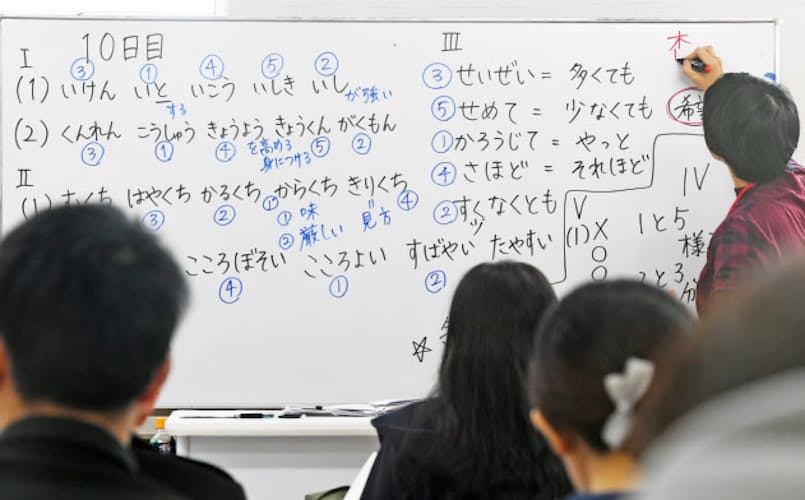 10日目
I
③ ① ④ ⑤ ②
(1) いけん いと いこう いしき いし が強い
する
(2) くんれん こうしゅう きょうよう きょうくん がくもん
③ ① ④ ⑤ ②
を高める
身につける
II
はやくち かるくち からくち きりくち
③ ② ① ④
① 味
② 厳しい 見方
こころぼそい こころよい すばやい たやすい
④ ① ②
III
③ せいぜい = 多くても
⑤ せめて = 少なくても
① かろうじて = やっと
④ さほど = それほど
② すくなくとも
IV
1と5
2と3
V
(1) X
○
○
☆